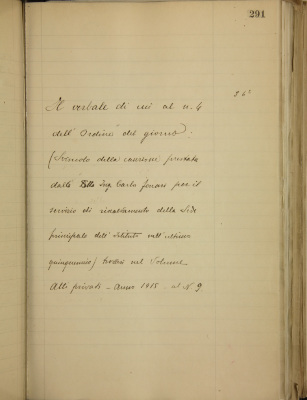 291
26°
Il verbale di cui al n. 4
dell'Ordine del giorno
(Svincolo della cauzione prestata
dalla Ditta Ing. Carlo per il
servizio di riscaldamento della Sede
principale dell'Istituto nell'ultimo
quinquennio) trovasi nel Volume
Atti privati - Anno 1915 al N. 9